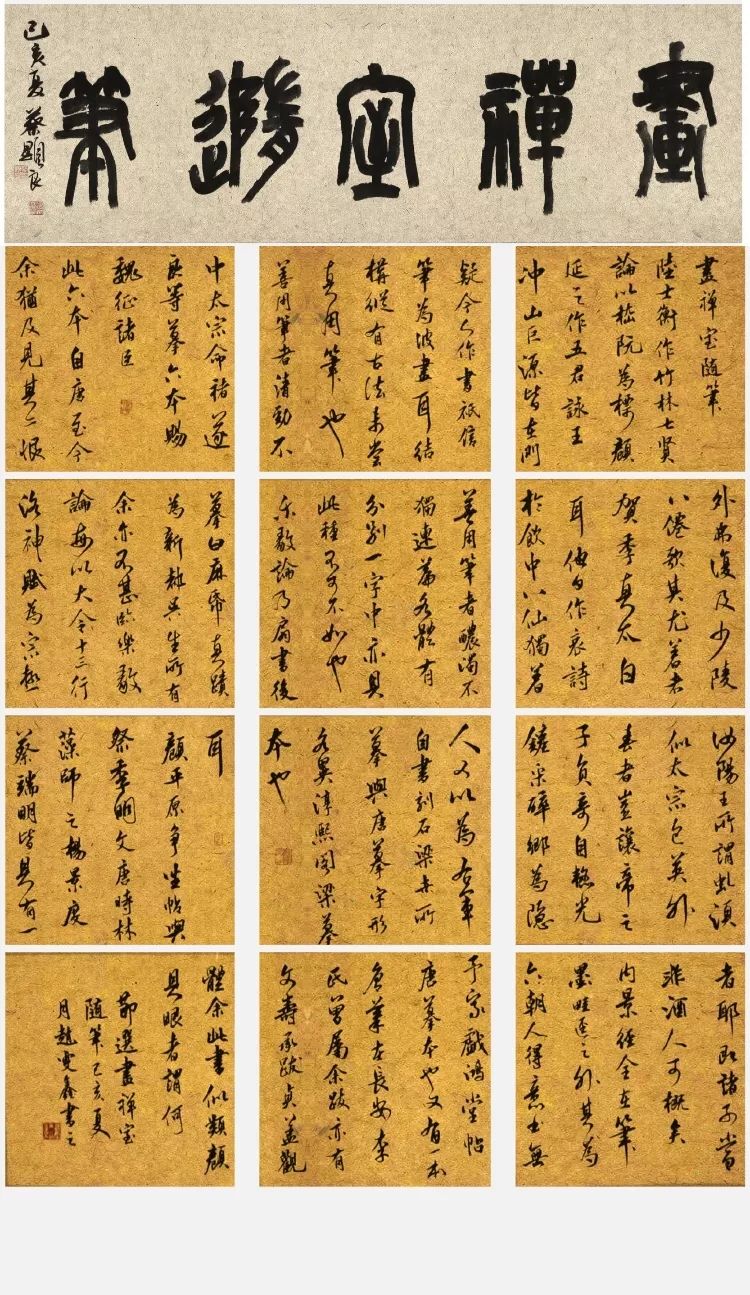 畫禪室隨筆
己亥夏 蔡顯良
畫禪室隨筆
陸士衡作竹林七賢
論以嵇阮為標顏
延之作五君詠王
沖山巨源皆在門
外弟復及少陵
八僊歌其尤著者
賀季真太白
耳他日作哀詩
於飲中八仙獨著
汝陽王所謂虬須
似太宗色英外
春者豈讓帝之
子負奇自韜光
鏟采醉鄉為隱
者耶即諸子當
非酒人可概矣
內景經全在筆
墨畦逕之外其為
六朝人得意書無
疑今人作書祇信
筆為波畫耳結
構縱有古法未嘗
真用筆也
善用筆者清勁不
善用筆者醲濁不
獨連篇各體有
分別一字中亦具
此種不可不知也
樂毅論乃扇書後
人又以為右軍
自書刻石梁所
摹與唐摹字形
各異淳熙閣梁摹
本也
予家戲鴻堂帖
唐摹本也又有一本
唐藁在長安李
民曾屬余跋亦有
文壽承跋貞蓋觀
中太宗命褚遂
良等摹六本賜
魏征諸臣
此六本自唐至今
余猶及見其二恨
摹白麻帋真蹟
為新都吳生所有
余亦不甚臨樂毅
論每以大令十三行
洛神賦為宗極
耳
顏平原爭坐帖與
祭季明文唐時林
藻師之楊景度
蔡端明皆具有一
體余此書似類顏
具眼者謂何
節選畫禪室
隨筆己亥夏
月趙雯鑫書之